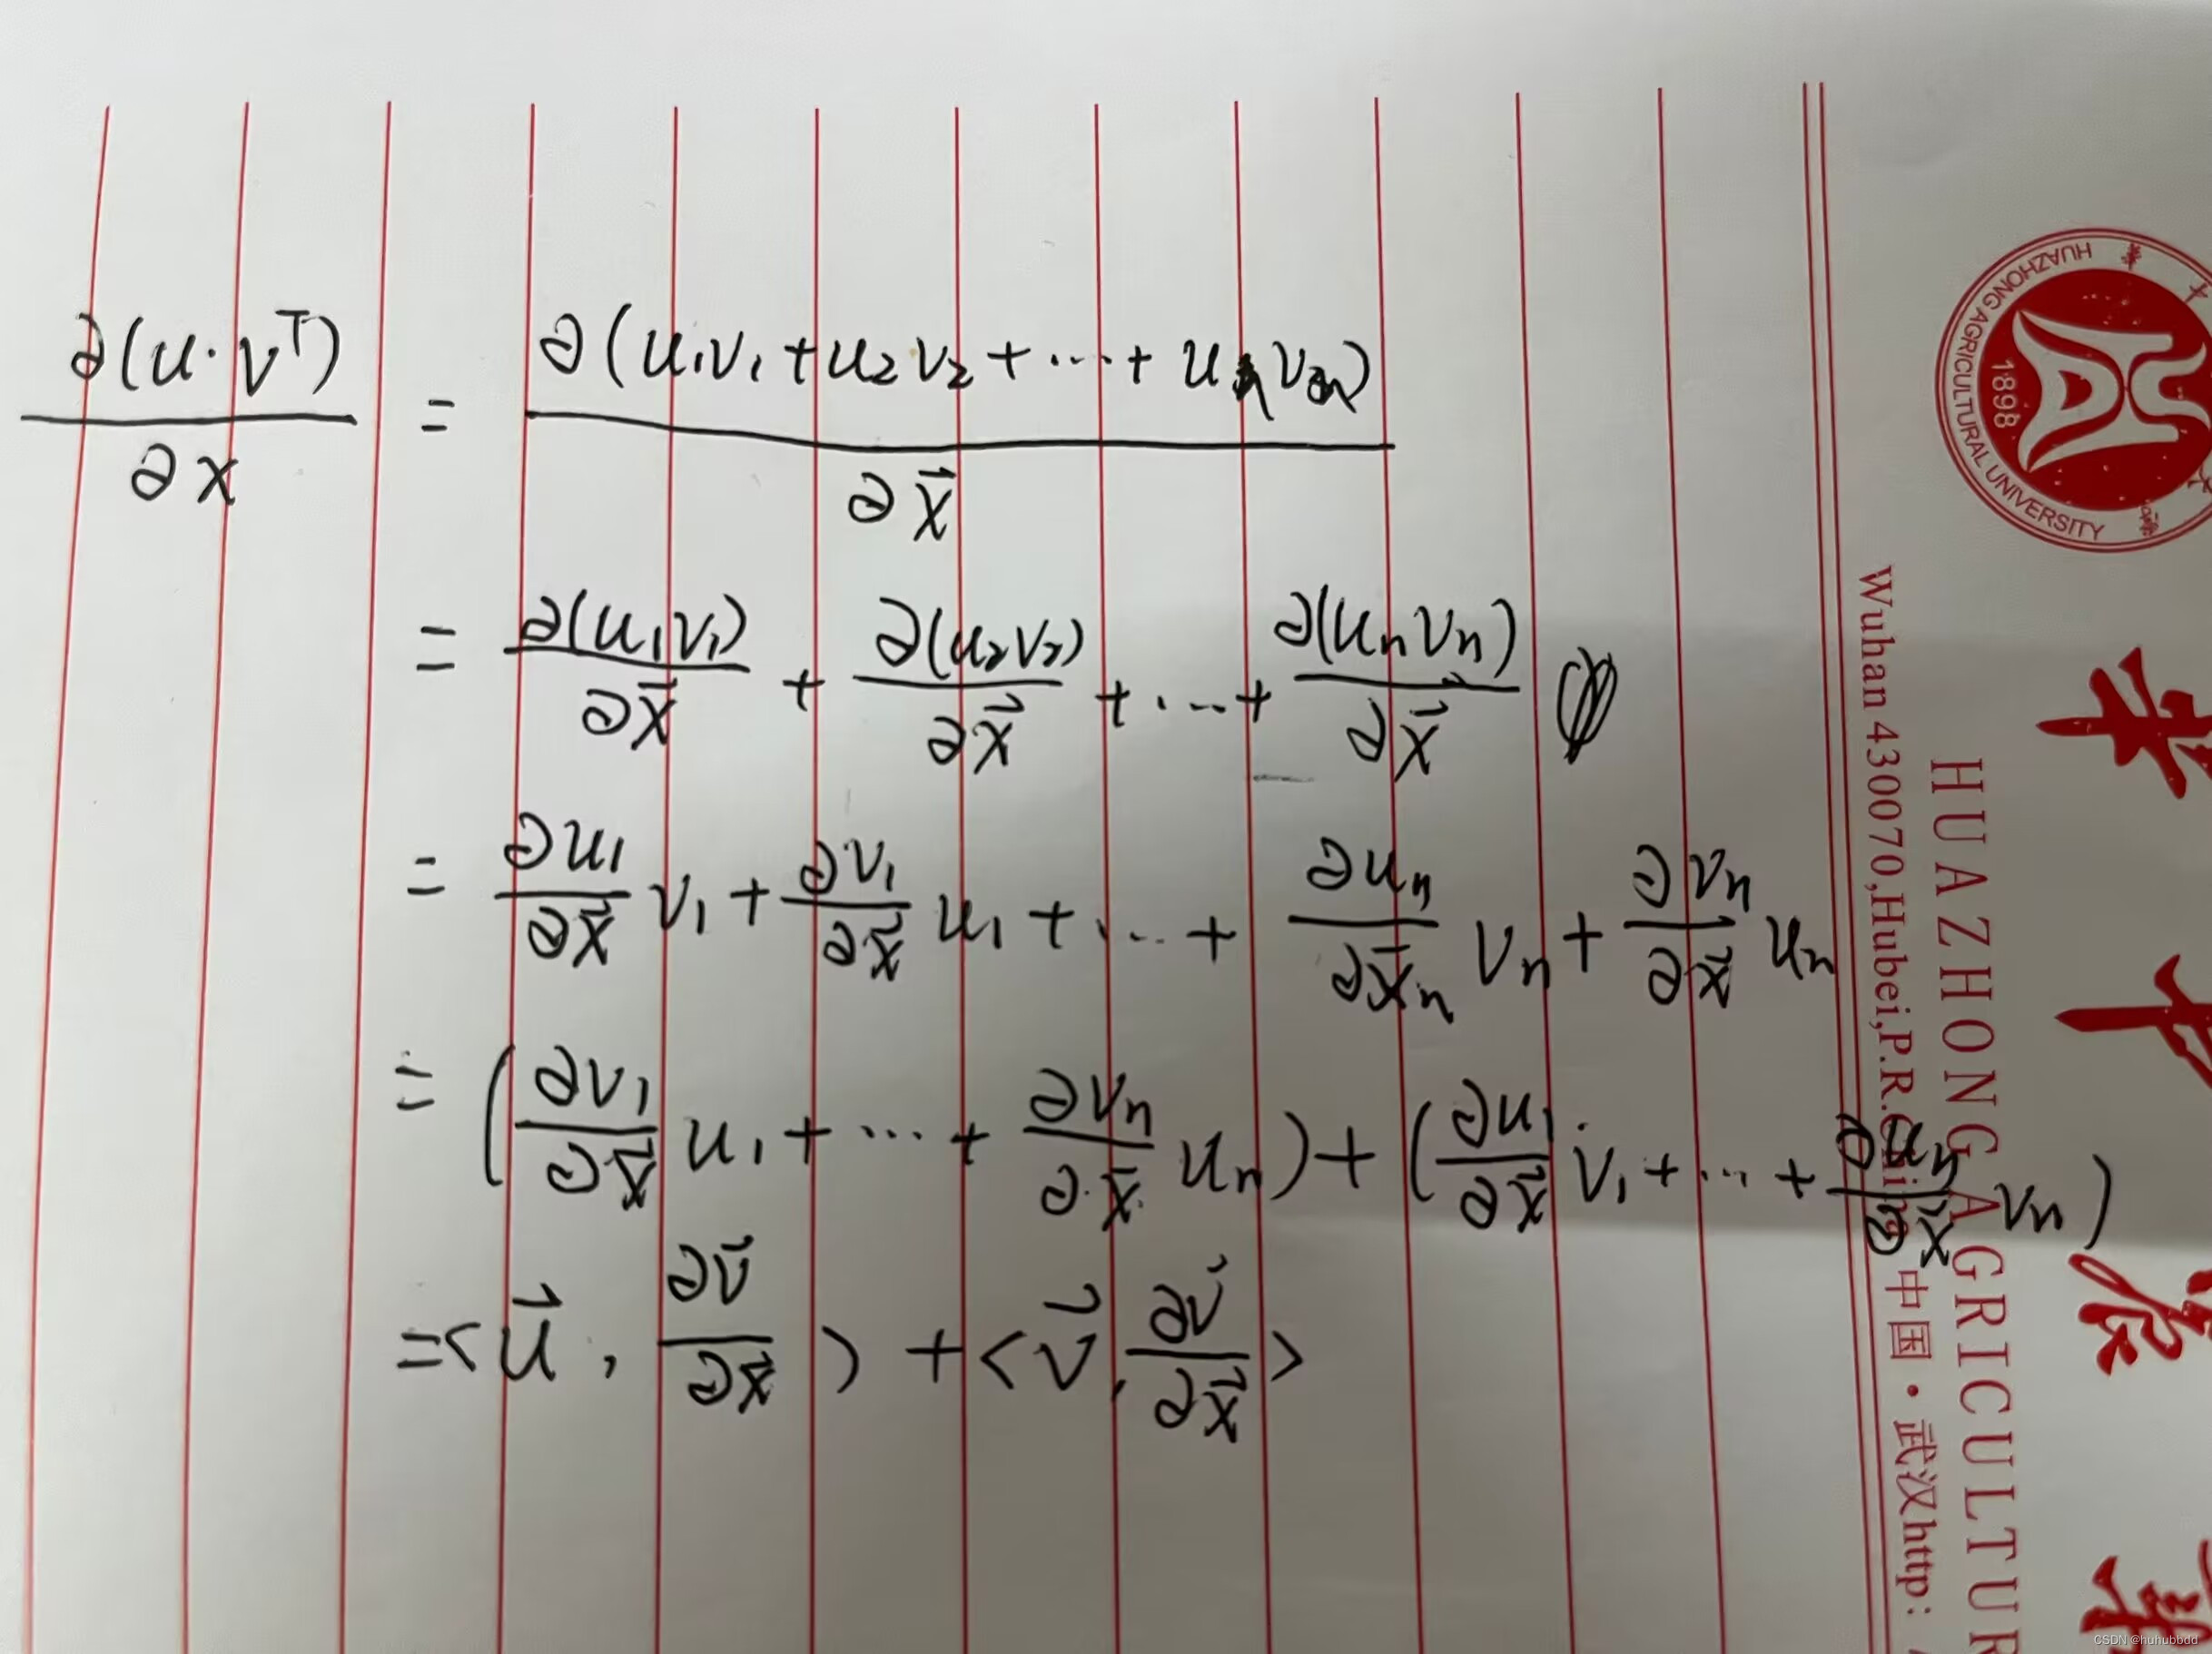 ∂(u·vᵀ)/∂x = ∂(u₁v₁+u₂v₂+···+uₙvₙ)/∂x⃗
= ∂(u₁v₁)/∂x⃗ + ∂(u₂v₂)/∂x⃗ +···+ ∂(uₙvₙ)/∂x⃗
= ∂u₁/∂x⃗ v₁ + ∂v₁/∂x⃗ u₁ +···+ ∂uₙ/∂x⃗ₙ vₙ + ∂vₙ/∂x⃗ uₙ
= (∂v₁/∂x⃗ u₁ +···+ ∂vₙ/∂x⃗ uₙ) + (∂u₁/∂x⃗ v₁ +···+ ∂uₙ/∂x⃗ vₙ)
= <u⃗, ∂v⃗/∂x⃗> + <v⃗, ∂v⃗/∂x⃗>
HUAZHONG AGRICULTURAL UNIVERSITY
1898
HUAZHONG AGRICULTUR
Wuhan 430070,Hubei,P.R.China 中国·武汉http:
华中农
CSDN @huhubbdd